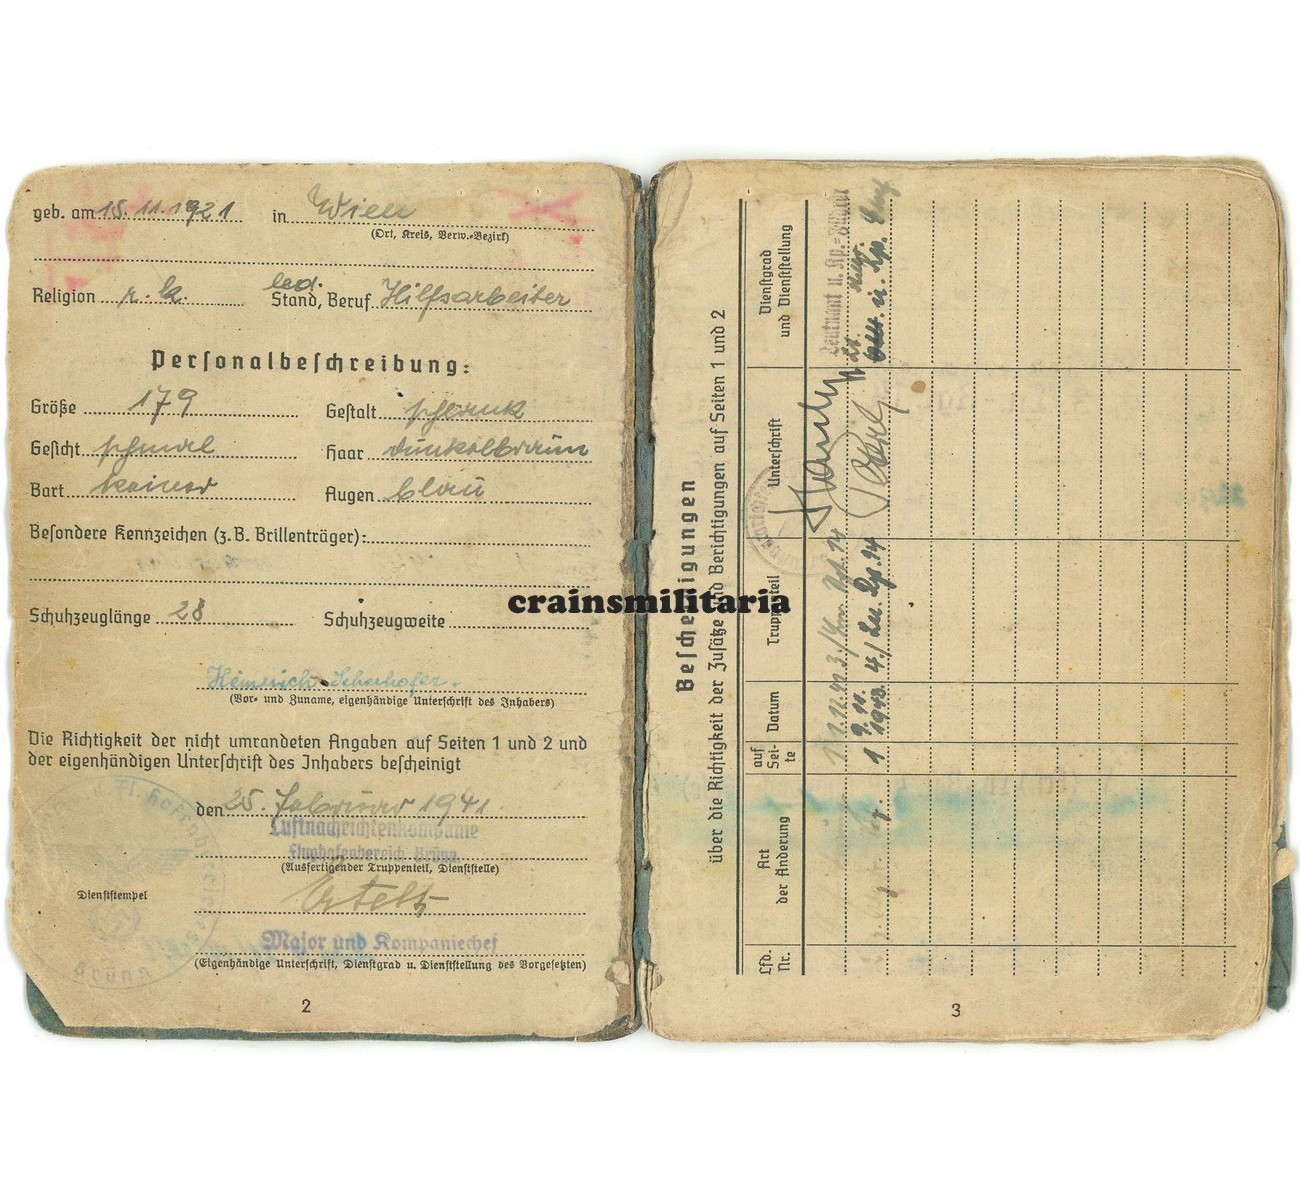 geb. am 15.11.1921 in Wien
(Ort, Kreis, Verw.-Bezirk)
Religion r.k. led. Stand, Beruf Hilfsarbeiter
Personalbeschreibung:
Größe 179 Gestalt schlank
Gesicht schmal Haar dunkelbraun
Bart keiner Augen blau
Besondere Kennzeichen (z. B. Brillenträger):
Schuhzeuglänge 28 Schuhzeugweite
Heinrich
(Vor- und Zuname, eigenhändige Unterschrift des Inhabers)
Die Richtigkeit der nicht umrandeten Angaben auf Seiten 1 und 2 und
der eigenhändigen Unterschrift des Inhabers bescheinigt
den 25. Februar 1941.
Luftnachrichtenkompanie
Flughafenbereich Brünn
(Ausfertigender Truppenteil, Dienststelle)
Dienststempel
Major und Kompaniechef
(Eigenhändige Unterschrift, Dienstgrad u. Dienststellung des Vorgesetzten)
2
Bescheinigungen
über die Richtigkeit der Zusätze und Berichtigungen auf Seiten 1 und 2
Lfd. Nr.
Art der Änderung
auf Seite
Datum
Truppenteil
Unterschrift
Dienstgrad und Dienststellung
Leutnant u. Kp.-
1
1943
3
crainsmilitaria